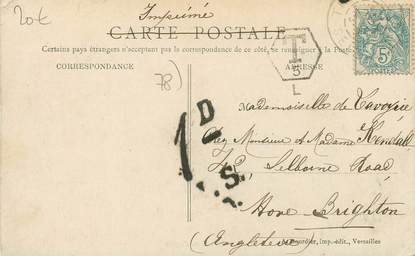 20€
Imprimé
CARTE POSTALE
Certains pays étrangers n'acceptant pas la correspondance de ce côté, se renseigner
CORRESPONDANCE
ADRESSE
78)
T
5
L
5c
D
1
S
Mademoiselle de
Chez Monsieur & Madame Kendall
Selborne Road,
Hove Brighton
(Angleterre)
imp.-édit., Versailles